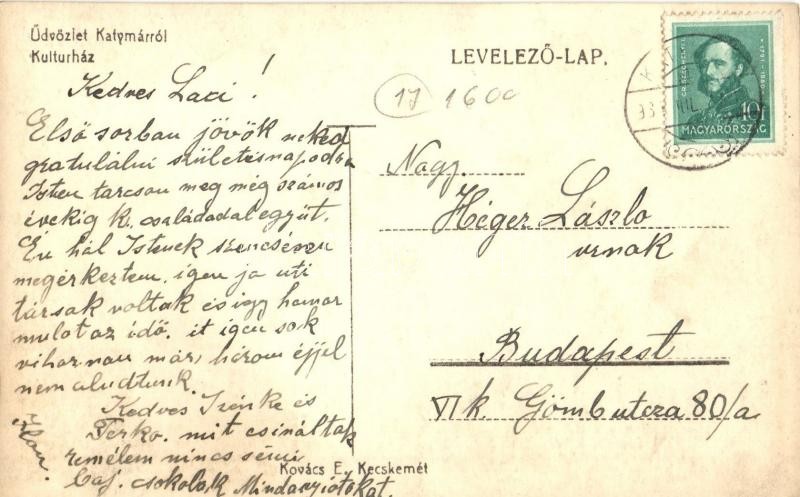 Üdvözlet Katymárról
Kulturház
LEVELEZŐ-LAP.
17 1600
GR. SZÉCHENYI I.
1791-1860
10
MAGYARORSZÁG
33
Kedves Laci!
Első sorban jövök neked
gratulálni születésnapodra
Isten tarcson meg még számos
évekig k. családadal együt.
Én hál Istenek szencsésen
megérkeztem, igen jo uti
társak voltak és így hamar
mulot az idő. it igen sok
vihar van már három éjjel
nem aludtunk.
Kedves Irénke és
Terko. mit csináltak
remélem nincs semi
baj. csokolok Mindanyiotokat.
Nagy.
Héger László
urnak
Budapest
VI k. Gömb utcza 80/a
Kovács E. Kecskemét